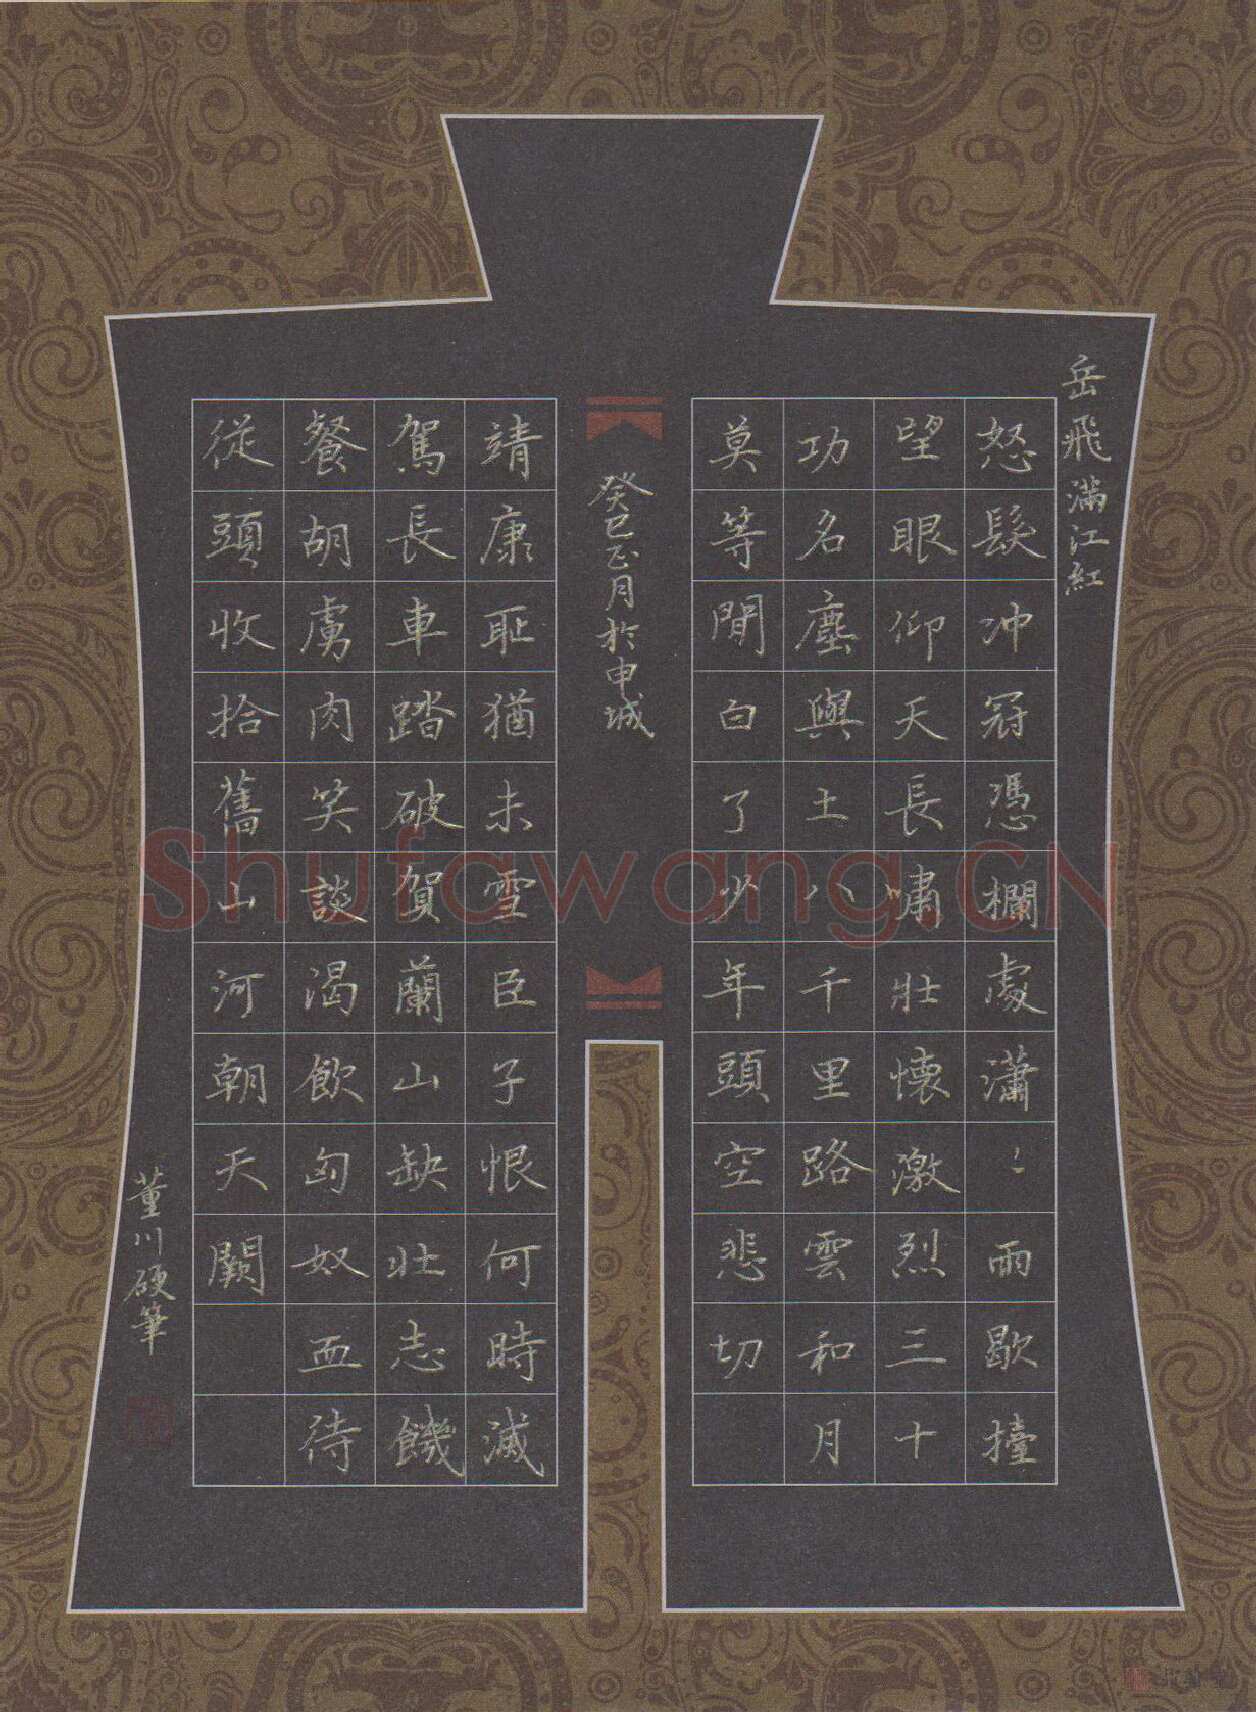 岳飛滿江紅
怒髮冲冠憑欄處瀟﹅雨歇擡
望眼仰天長嘯壯懷激烈三十
功名塵與土八千里路雲和月
莫等閒白了少年頭空悲切
癸巳正月於申城
靖康恥猶未雪臣子恨何時滅
駕長車踏破賀蘭山缺壯志饑
餐胡虜肉笑談渴飲匈奴血待
從頭收拾舊山河朝天闕
董川硬筆
Shufawang.CN